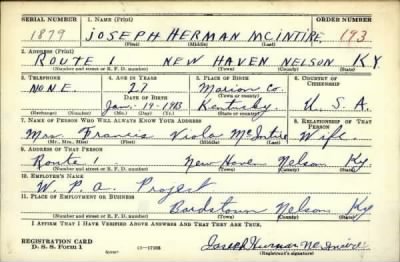 SERIAL NUMBER 1. NAME (Print) ORDER NUMBER
1879 JOSEPH HERMAN MCINTIRE 193
(First) (Middle) (Last)
2. ADDRESS (Print)
ROUTE 1 NEW HAVEN NELSON KY.
(Number and street or R. F. D. number) (Town) (County) (State)
3. TELEPHONE 4. AGE IN YEARS 5. PLACE OF BIRTH 6. COUNTRY OF CITIZENSHIP
NONE. 27 Marion Co.
DATE OF BIRTH (Town or county)
Jan. 19-1913 Kentucky U.S.A.
(Exchange) (Number) (Mo.) (Day) (Yr.) (State or country)
7. NAME OF PERSON WHO WILL ALWAYS KNOW YOUR ADDRESS 8. RELATIONSHIP OF THAT PERSON
Mrs. Francis Viola McIntire Wife.
(Mr., Mrs., Miss) (First) (Middle) (Last)
9. ADDRESS OF THAT PERSON
Route 1. New Haven Nelson Ky
(Number and street or R. F. D. number) (Town) (County) (State)
10. EMPLOYER'S NAME
W. P. A. Project
11. PLACE OF EMPLOYMENT OR BUSINESS
Bardstown Nelson Ky
(Number and street or R. F. D. number) (Town) (County) (State)
I AFFIRM THAT I HAVE VERIFIED ABOVE ANSWERS AND THAT THEY ARE TRUE.
REGISTRATION CARD
D. S. S. Form 1 Joseph Herman McIntire
(Registrant's signature)